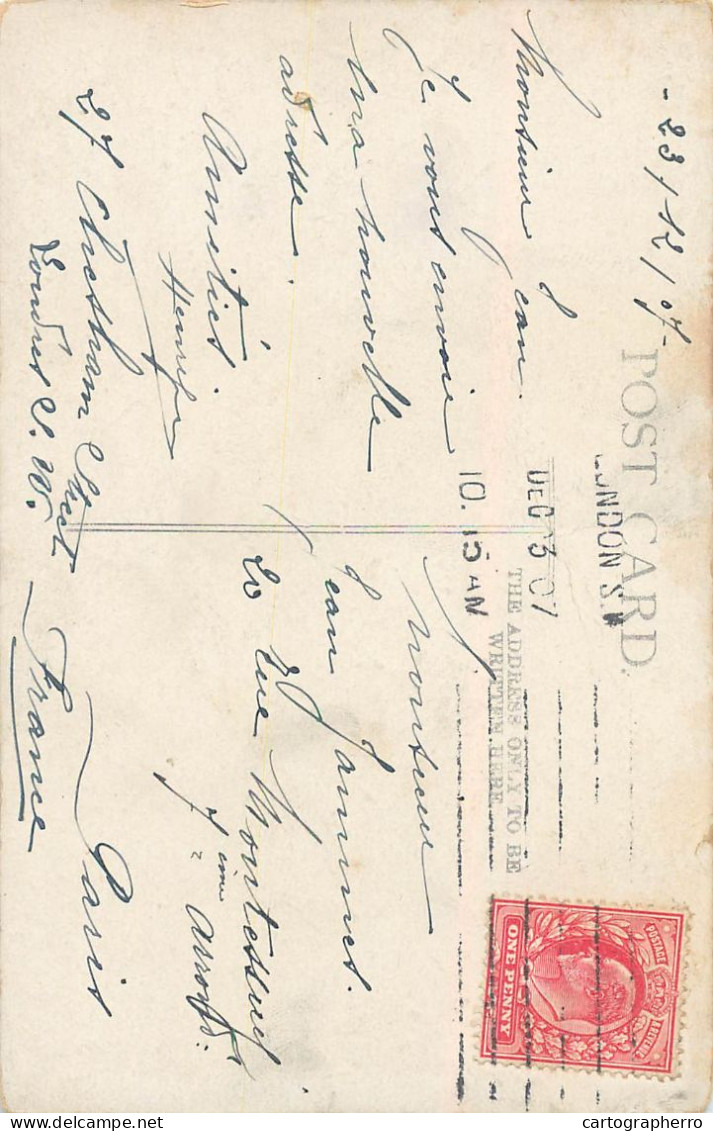 - 23/12/07-
POST CARD.
THE ADDRESS ONLY TO BE
WRITTEN HERE
LONDON S.W
DEC 23 07
10.15 AM
Monsieur Jean.
Je vous envoie
ma nouvelle
adresse.
Amitiés.
27 Chesham Street
Londres S.W.
Monsieur
Jean Jammes.
20 rue Montessuy
7ème arrondt.
Paris
France
POSTAGE
ONE PENNY
cartographerro